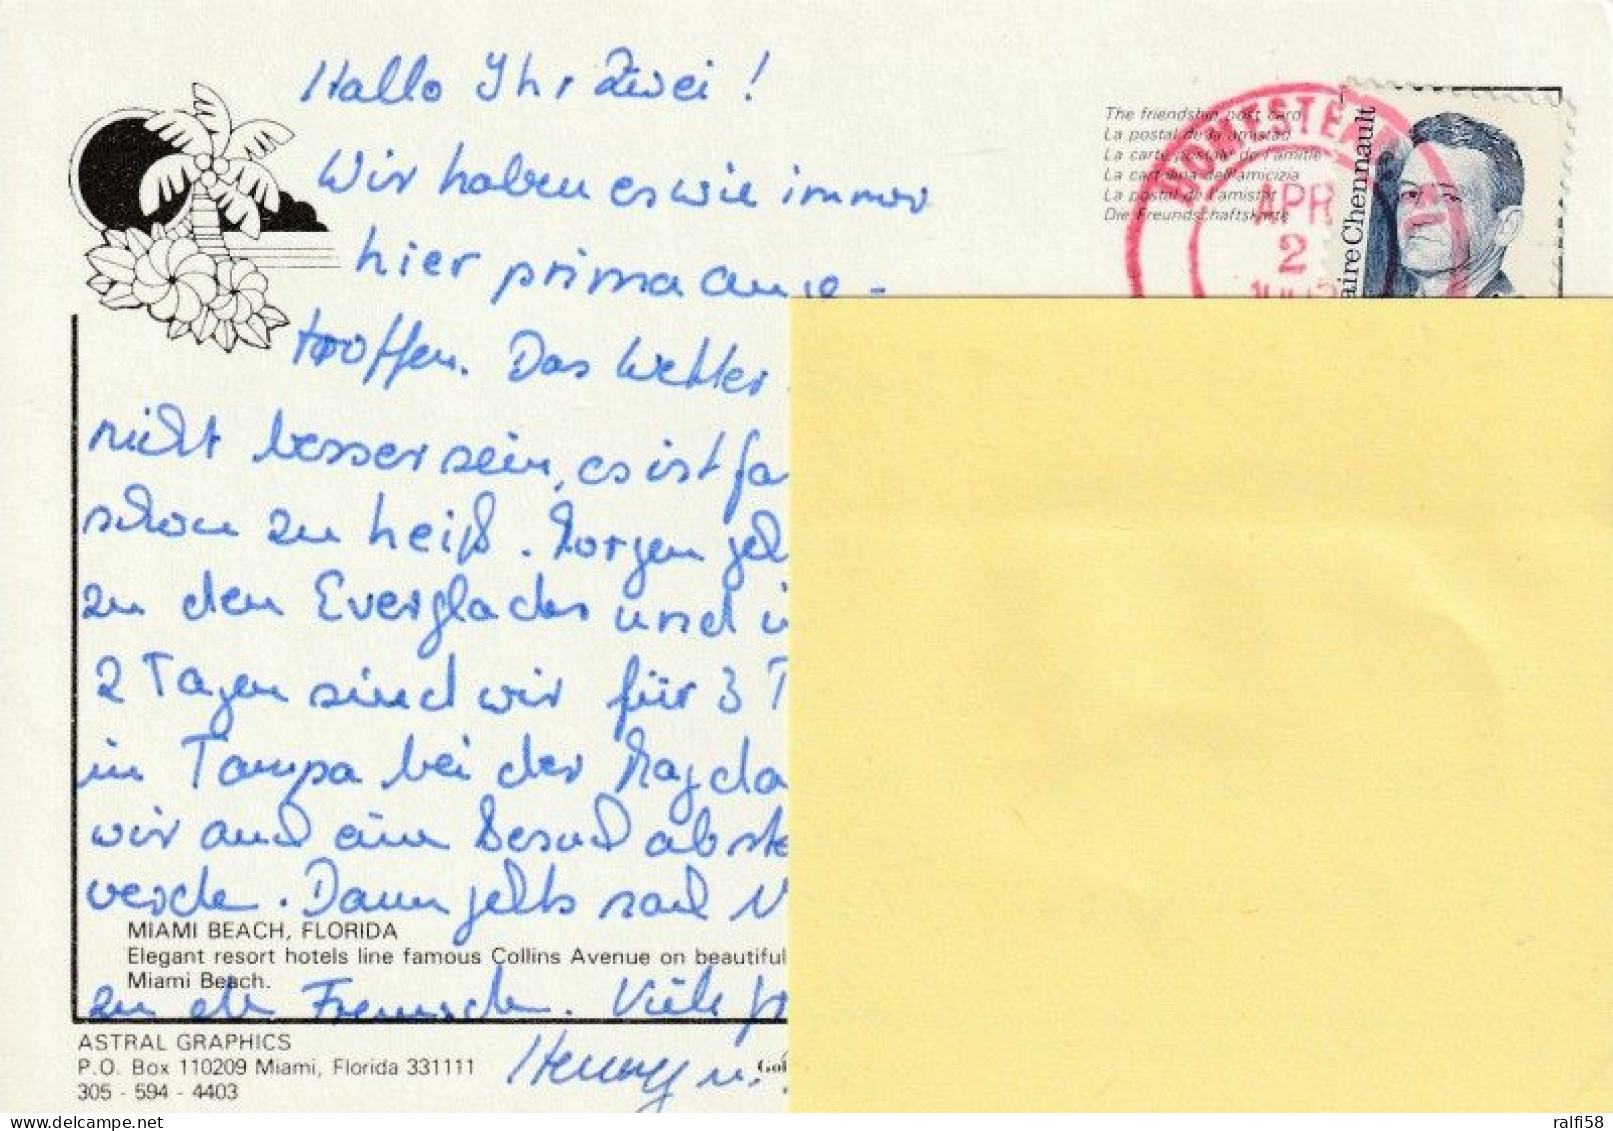 Hallo Ihr Zwei!
Wir haben es wie immer
hier prima ange-
troffen. Das Wetter
nicht besser sein, es ist fa
schon zu heiß. Morgen geh
zu den Everglades und i
2 Tagen sind wir für 3 T
in Tampa bei der Magda
wir auch ein Besuch abste
werde. Dann gehts nach N
zu den Freunden. Viele
Henny u.
MIAMI BEACH, FLORIDA
Elegant resort hotels line famous Collins Avenue on beautiful
Miami Beach.
ASTRAL GRAPHICS
P.O. Box 110209 Miami, Florida 331111
305 - 594 - 4403
The friendship post card
La postal de la amistad
La carte postale de l'amitie
La cartolina dell'amicizia
La postal de l'amistat
Die Freundschaftskarte
HOMESTEA
APR
2
aire Chennault
ralfi58